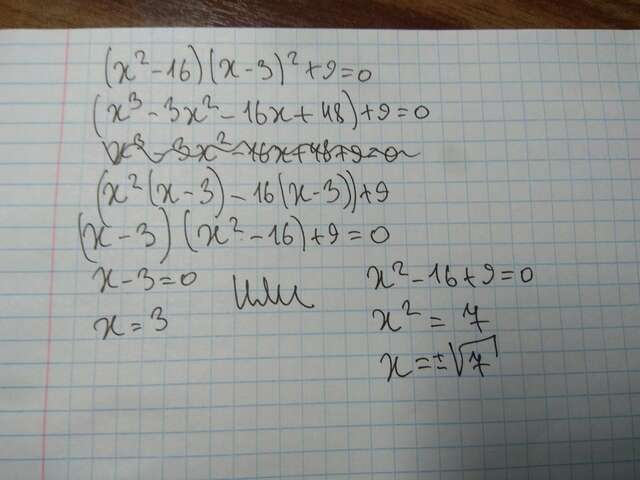 (x² - 16)(x - 3)² + 9 = 0
(x³ - 3x² - 16x + 48) + 9 = 0
x³ - 3x² - 16x + 48 + 9 = 0
(x²(x - 3) - 16(x - 3)) + 9
(x - 3)(x² - 16) + 9 = 0
x - 3 = 0 или x² - 16 + 9 = 0
x = 3 x² = 7
x = ±√7